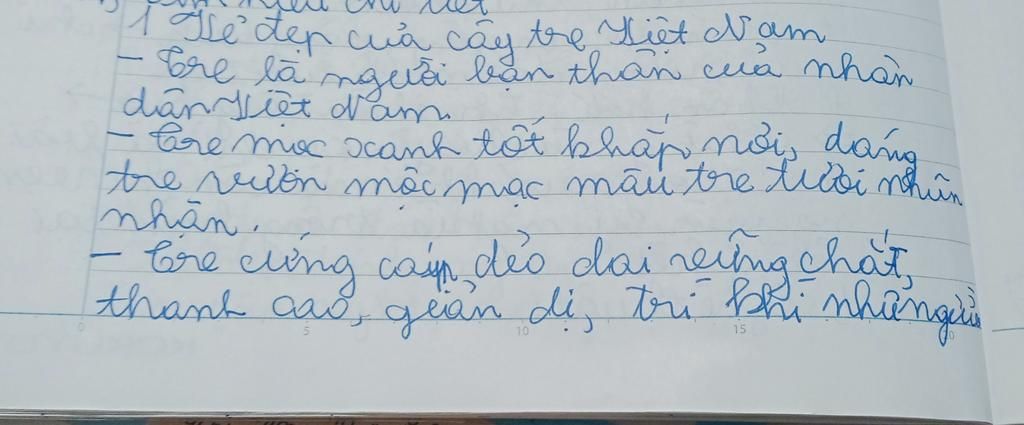 hiểu chi tiết
1 Vẻ đẹp của cây tre Việt Nam
- Tre là người bạn thân của nhân
dân Việt Nam.
- Tre mọc xanh tốt khắp nơi, dáng
tre vươn mộc mạc màu tre tươi nhũn
nhặn.
- Tre cứng cáp, dẻo dai vững chắt,
thanh cao, giản dị, trí khí như người
0 5 10 15